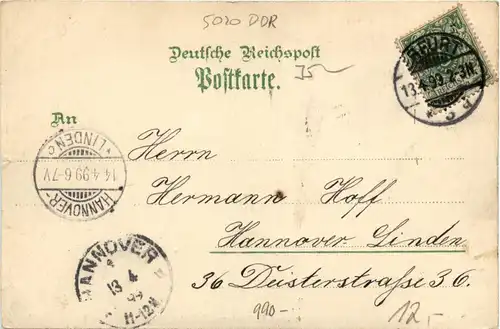 5020 DDR
Deutsche Reichspost
Postkarte.
35-
An
Herrn
Hermann Hoff
Hannover-Linden
36 Deisterstraße 36.
ERFURT
13.4.99.2-3N.
* 3 d
HANNOVER-
14.4.99.6-7V.
*LINDEN*
HANNOVER
13 4
99
11-12N
990-
12,-